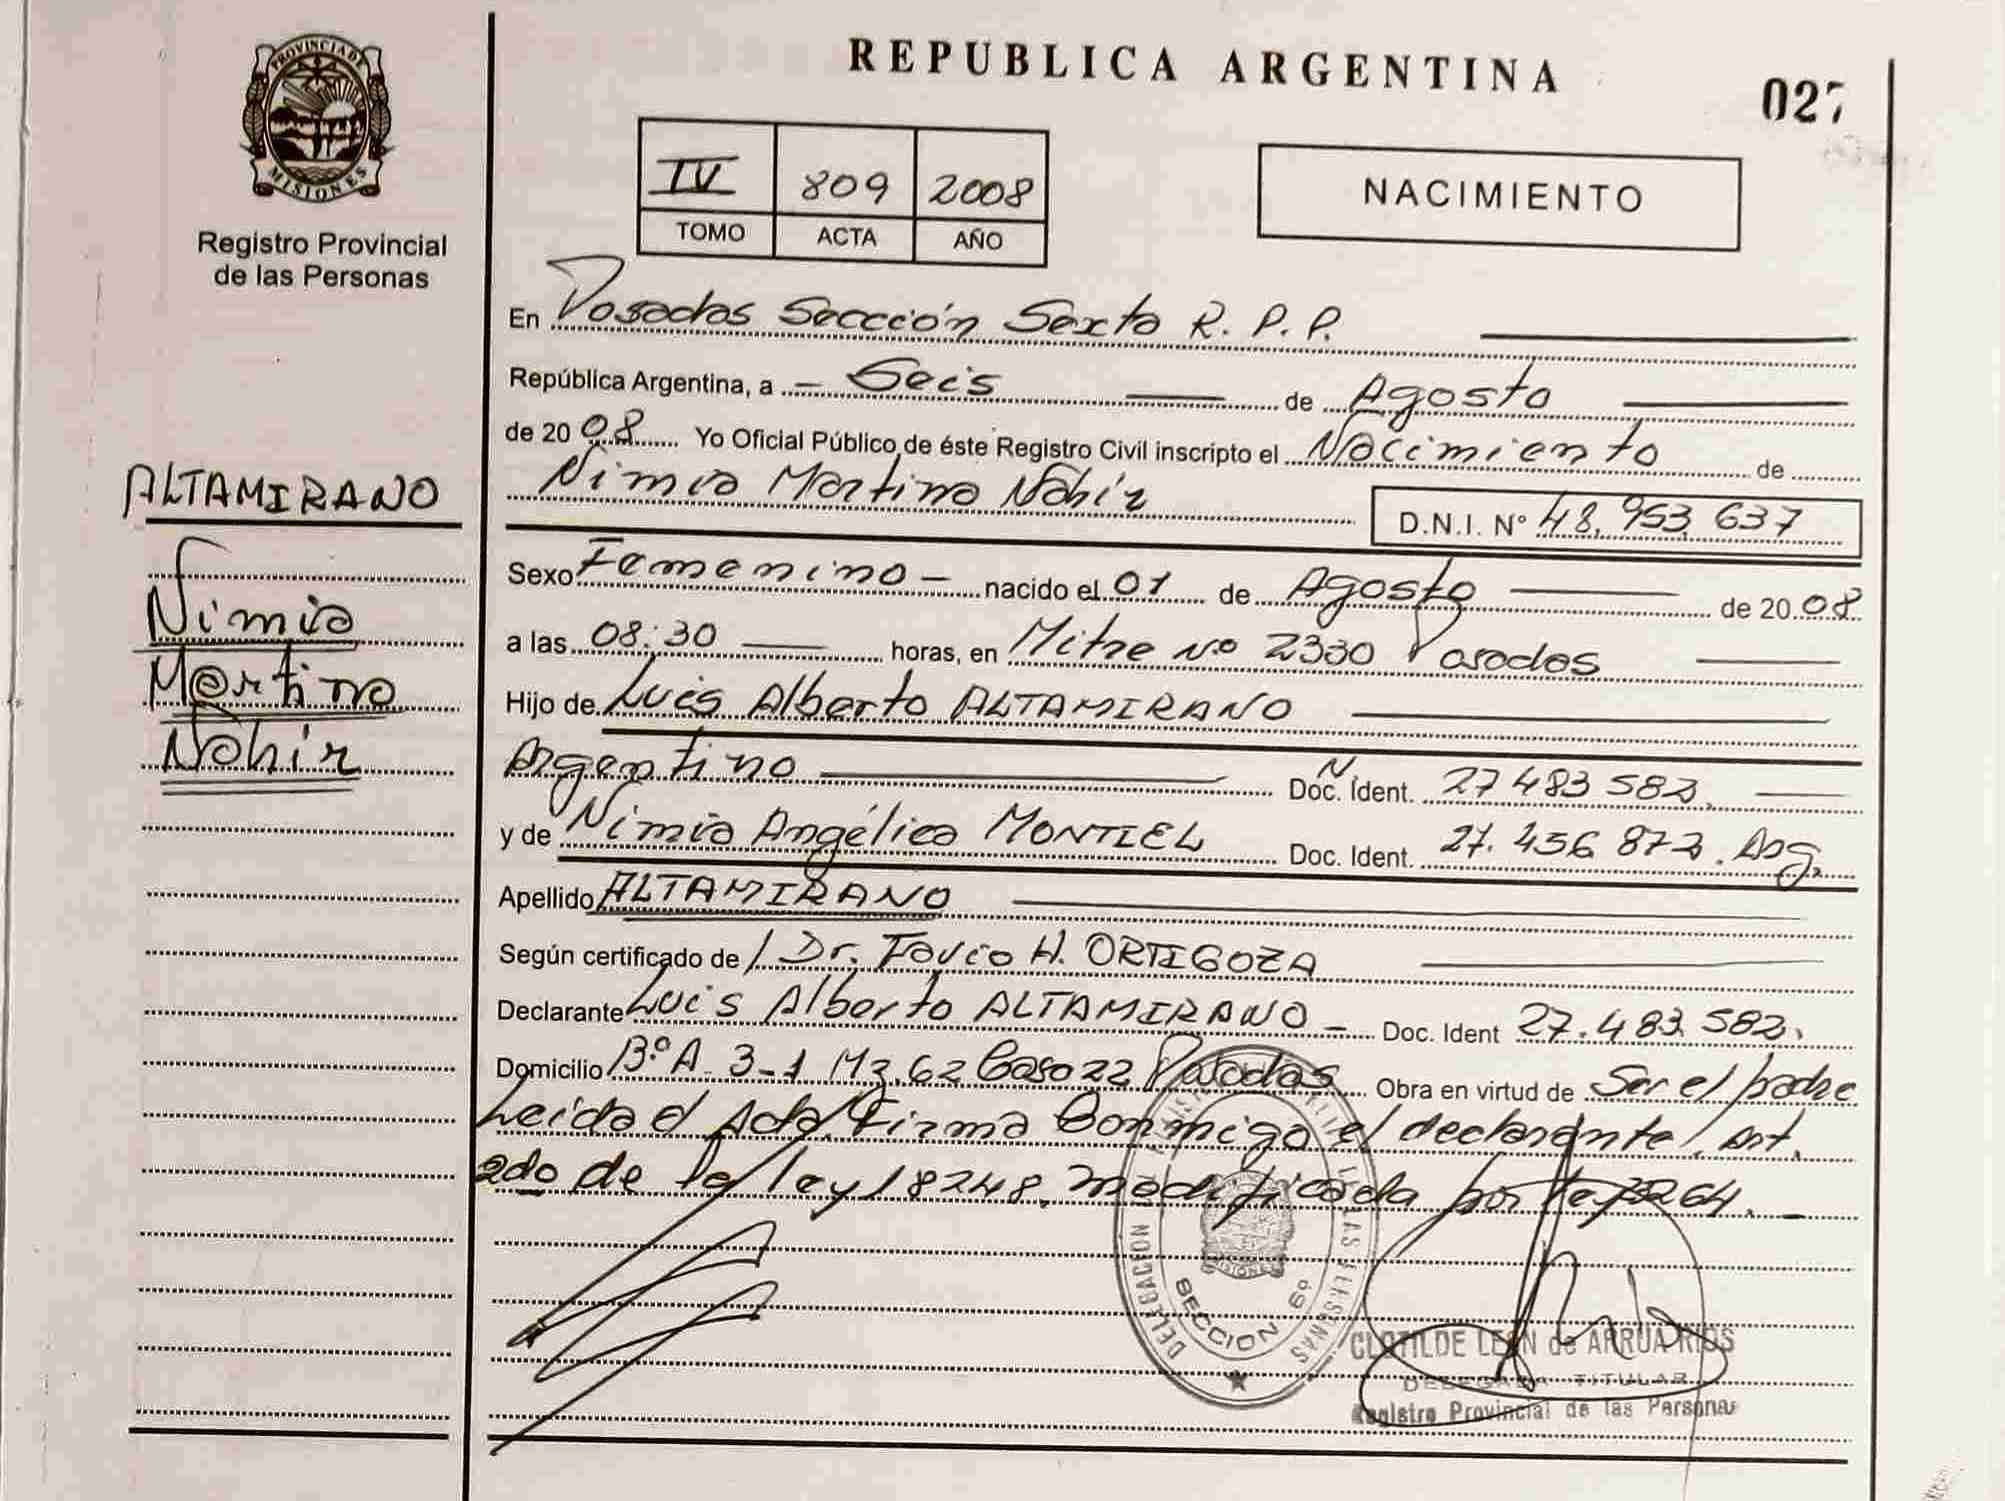 REPUBLICA ARGENTINA
027
PROVINCIA DE
MISIONES
Registro Provincial
de las Personas
IV 809 2008
TOMO ACTA AÑO
NACIMIENTO
En Posadas Sección Sexta R. P. P.
República Argentina, a Seis de Agosto
de 2008 Yo Oficial Público de éste Registro Civil inscripto el Nacimiento de
Nimia Martina Nahir D.N.I. N° 48.953.637
ALTAMIRANO
Nimia
Martina
Nahir
Sexo Femenino - nacido el 01 de Agosto de 2008
a las 08:30 horas, en Mitre Nº 2330 Posadas
Hijo de Luis Alberto ALTAMIRANO
Argentino Doc. Ident. 27 483 582.
y de Nimia Angélica MONTIEL Doc. Ident. 27.456 872. Arg.
Apellido ALTAMIRANO
Según certificado de / Dr. Favio H. ORTIGOZA
Declarante Luis Alberto ALTAMIRANO - Doc. Ident 27.483.582.
Domicilio Bº A-3-1 Mz.62 Casa 22 Posadas Obra en virtud de Ser el padre
Leída el Acta Firma Conmigo el declarante. Art.
2do de la ley 18248. modificada por ley
DELEGACION
SECCION 6º
CLOTILDE LEON de ARRUA RIOS
DELEGADA TITULAR
Registro Provincial de las Personas